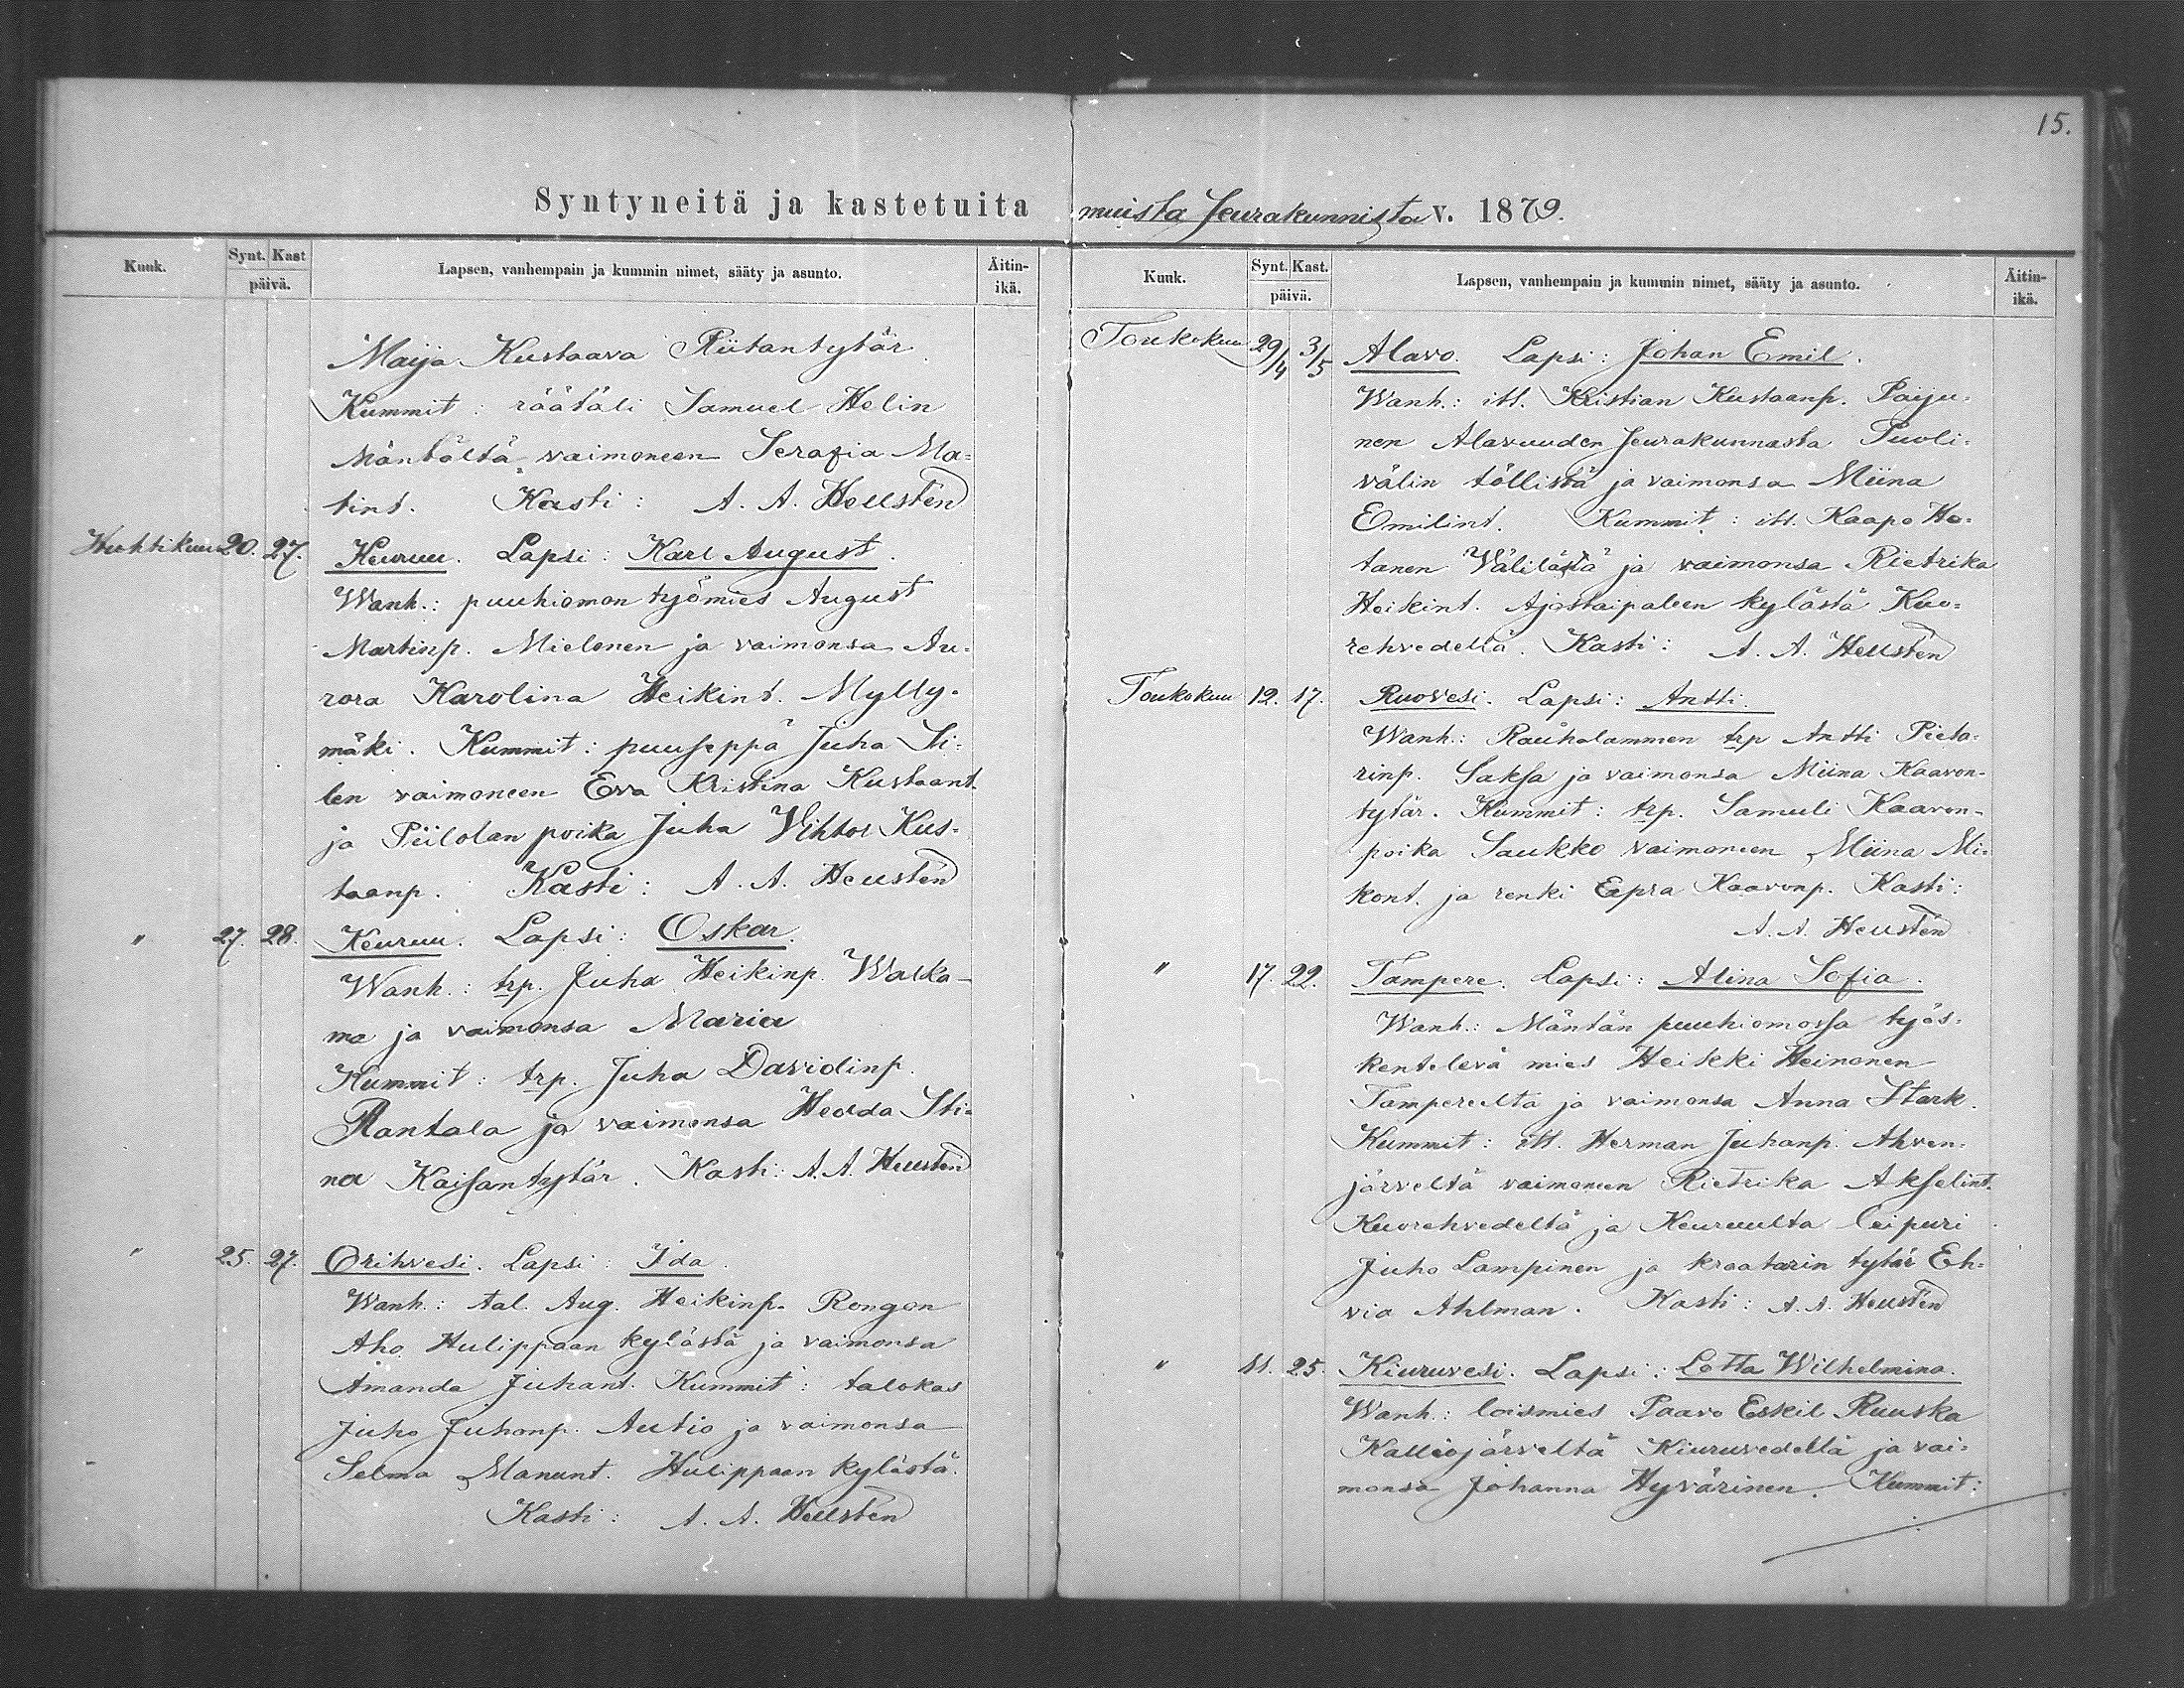 15.
Syntyneitä ja kastetuita muista Seurakunnista v. 1879.
Kuuk. Synt. Kast päivä. Lapsen, vanhempain ja kummin nimet, sääty ja asunto. Äitin-ikä.
Maija Kustaava Riitantytär
Kummit: räätäli Samuel Helin
Mäntältä vaimoneen Serafia Ma-
tint. Kasti: A. A. Hellstén
Huhtikuu 20. 27. Keuruu. Lapsi: Karl August.
Wanh.: puuhiomon työmies August
Martinp. Mielonen ja vaimonsa Au-
rora Karolina Heikint. Mylly-
mäki. Kummit: puuseppä Juha Si-
len vaimoneen Eva Kristina Kustaant.
ja Piilolan poika Juha Vihtor Kus-
taanp. Kasti: A. A. Hellstén
" 27. 28. Keuruu. Lapsi: Oskar.
Wanh.: trp. Juha Heikinp. Walka-
ma ja vaimonsa Maria
Kummit: trp. Juha Davidinp.
Rantala ja vaimonsa Hedda Sti-
na Kaisantytär. Kasti: A. A. Hellstén
" 25. 27. Orihvesi. Lapsi: Ida.
Wanh.: tal. Aug. Heikinp. Rongon
Aho Hulippaan kylästä ja vaimonsa
Amanda Juhant. Kummit: talokas
Juho Juhonp. Autio ja vaimonsa
Selma Manunt. Hulippaan kylästä.
Kasti: A. A. Hellstén
Kuuk. Synt. Kast. päivä. Lapsen, vanhempain ja kummin nimet, sääty ja asunto. Äitin-ikä.
Toukokuu 29/4 3/5 Alavo. Lapsi: Johan Emil.
Wanh.: itl. Kristian Kustaanp. Paiju-
nen Alavuuden Seurakunnasta Puoli-
välin töllistä ja vaimonsa Miina
Emilint. Kummit: itl. Kaapo Ho-
tanen Välilästä ja vaimonsa Rietrika
Heikint. Ajostaipaleen kylästä Kuo-
rehvedeltä. Kasti: A. A. Hellstén
Toukokuu 12. 17. Ruovesi. Lapsi: Antti.
Wanh.: Rauhalammen trp Antti Pieta-
rinp. Saksa ja vaimonsa Miina Kaavon-
tytär. Kummit: trp. Samuli Kaavon-
poika Saukko vaimoneen Miina Mi-
kont. ja renki Eepra Kaavonp. Kasti:
A. A. Hellstén
" 17. 22. Tampere. Lapsi: Alina Sofia.
Wanh.: Mäntän puuhiomossa työs-
kentelevä mies Heikki Heinonen
Tampereelta ja vaimonsa Anna Stark.
Kummit: itl. Herman Juhanp. Ahven-
järveltä vaimoneen Rietrika Akselint.
Kuorehvedeltä ja Keuruulta leipuri
Juho Lampinen ja kraatarin tytär Eh-
via Ahlman. Kasti: A. A. Hellstén
" 11. 25. Kiuruvesi. Lapsi: Lotta Wilhelmina.
Wanh.: loismies Paavo Eskil Ruuska
Kalliojärveltä Kiuruvedeltä ja vai-
monsa Johanna Hyvärinen. Kummit: